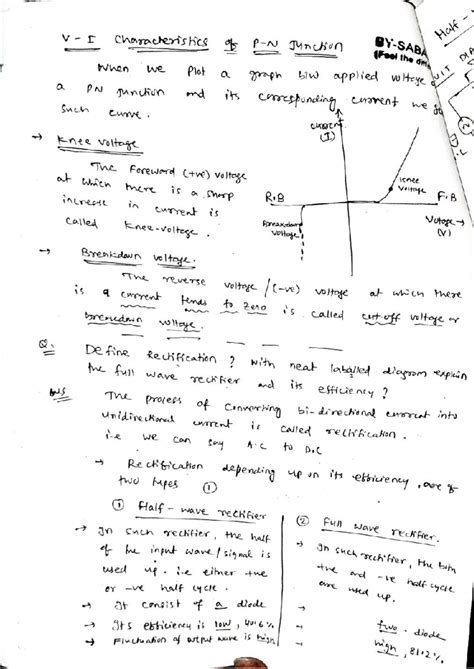 V - I Characteristics of P-N Junction
BY-SABA
(Feel the
When we plot a graph b/w applied voltage
a PN Junction and its corresponding current we
such curve.
→ Knee voltage
The foreward (+ve) voltage
at which there is a sharp
increase in current is
called Knee-voltage.
current
(I)
Knee
voltage
R.B
F.B
Breakdown
voltage
Votage →
(V)
→ Breakdown voltage.
The reverse voltage /(-ve) voltage at which there
is a current tends to zero is called cut-off voltage or
breakdown voltage.
Q. Define Rectification? with neat labelled diagram explain
the full wave rectifier and its efficiency?
Ans The process of converting bi-directional current into
unidirectional current is called rectification.
i.e we can say A.C to D.C
→ Rectification depending up on its efficiency, are of
two types
①
① Half - wave rectifier
→ In such rectifier, the half
of the input wave/signal is
used up. i.e either +ve
or -ve half cycle.
→ It consist of a diode
→ Its efficiency is low, 40.6%
→ Fluctuation of output wave is high
② Full wave rectifier.
→ In such rectifier, the both
+ve and -ve half cycle
are used up.
→ two diode
high, 81.2%
Half -